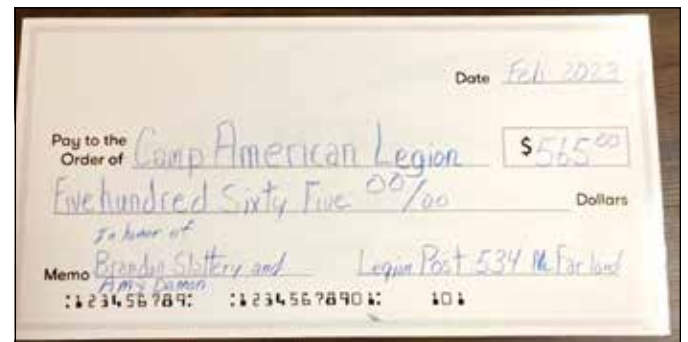 Date Feb 2023
Pay to the
Order of Camp American Legion $565 00
Five hundred Sixty Five 00/00 Dollars
In honor of
Memo Brandon Slattery and Legion Post 534 McFarland
Amy Damon
⑆123456789⑆ ⑆12345678901⑆ 101